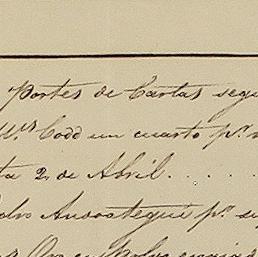 Portes de Cartas segu
M.rs Codd un cuarto p.r
ta 2 de Abril......
dro Anduaztegui p.r su